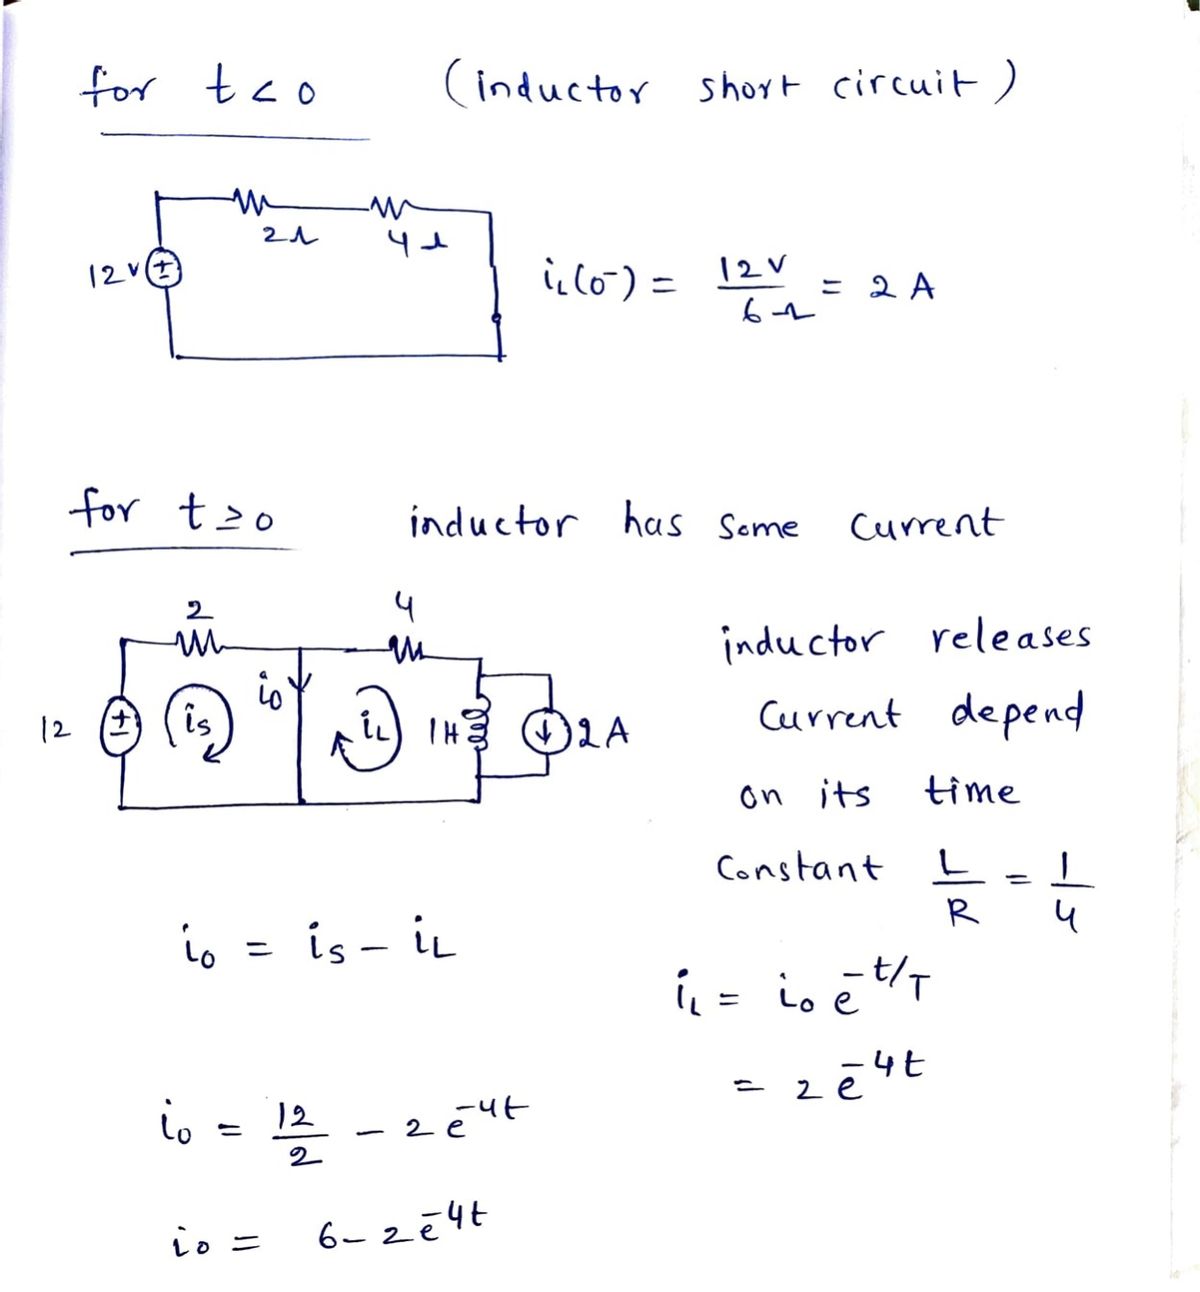 for t < 0 (inductor short circuit)
2Ω 4Ω
12V ±
iL(0⁻) = 12V / 6Ω = 2 A
for t ≥ 0 inductor has some current
2 4
12 ± is io iL 1H 2A
inductor releases
Current depend
on its time
Constant L/R = 1/4
io = is - iL
iL = io e^-t/T
= 2 e^-4t
io = 12/2 - 2 e^-4t
io = 6 - 2 e^-4t